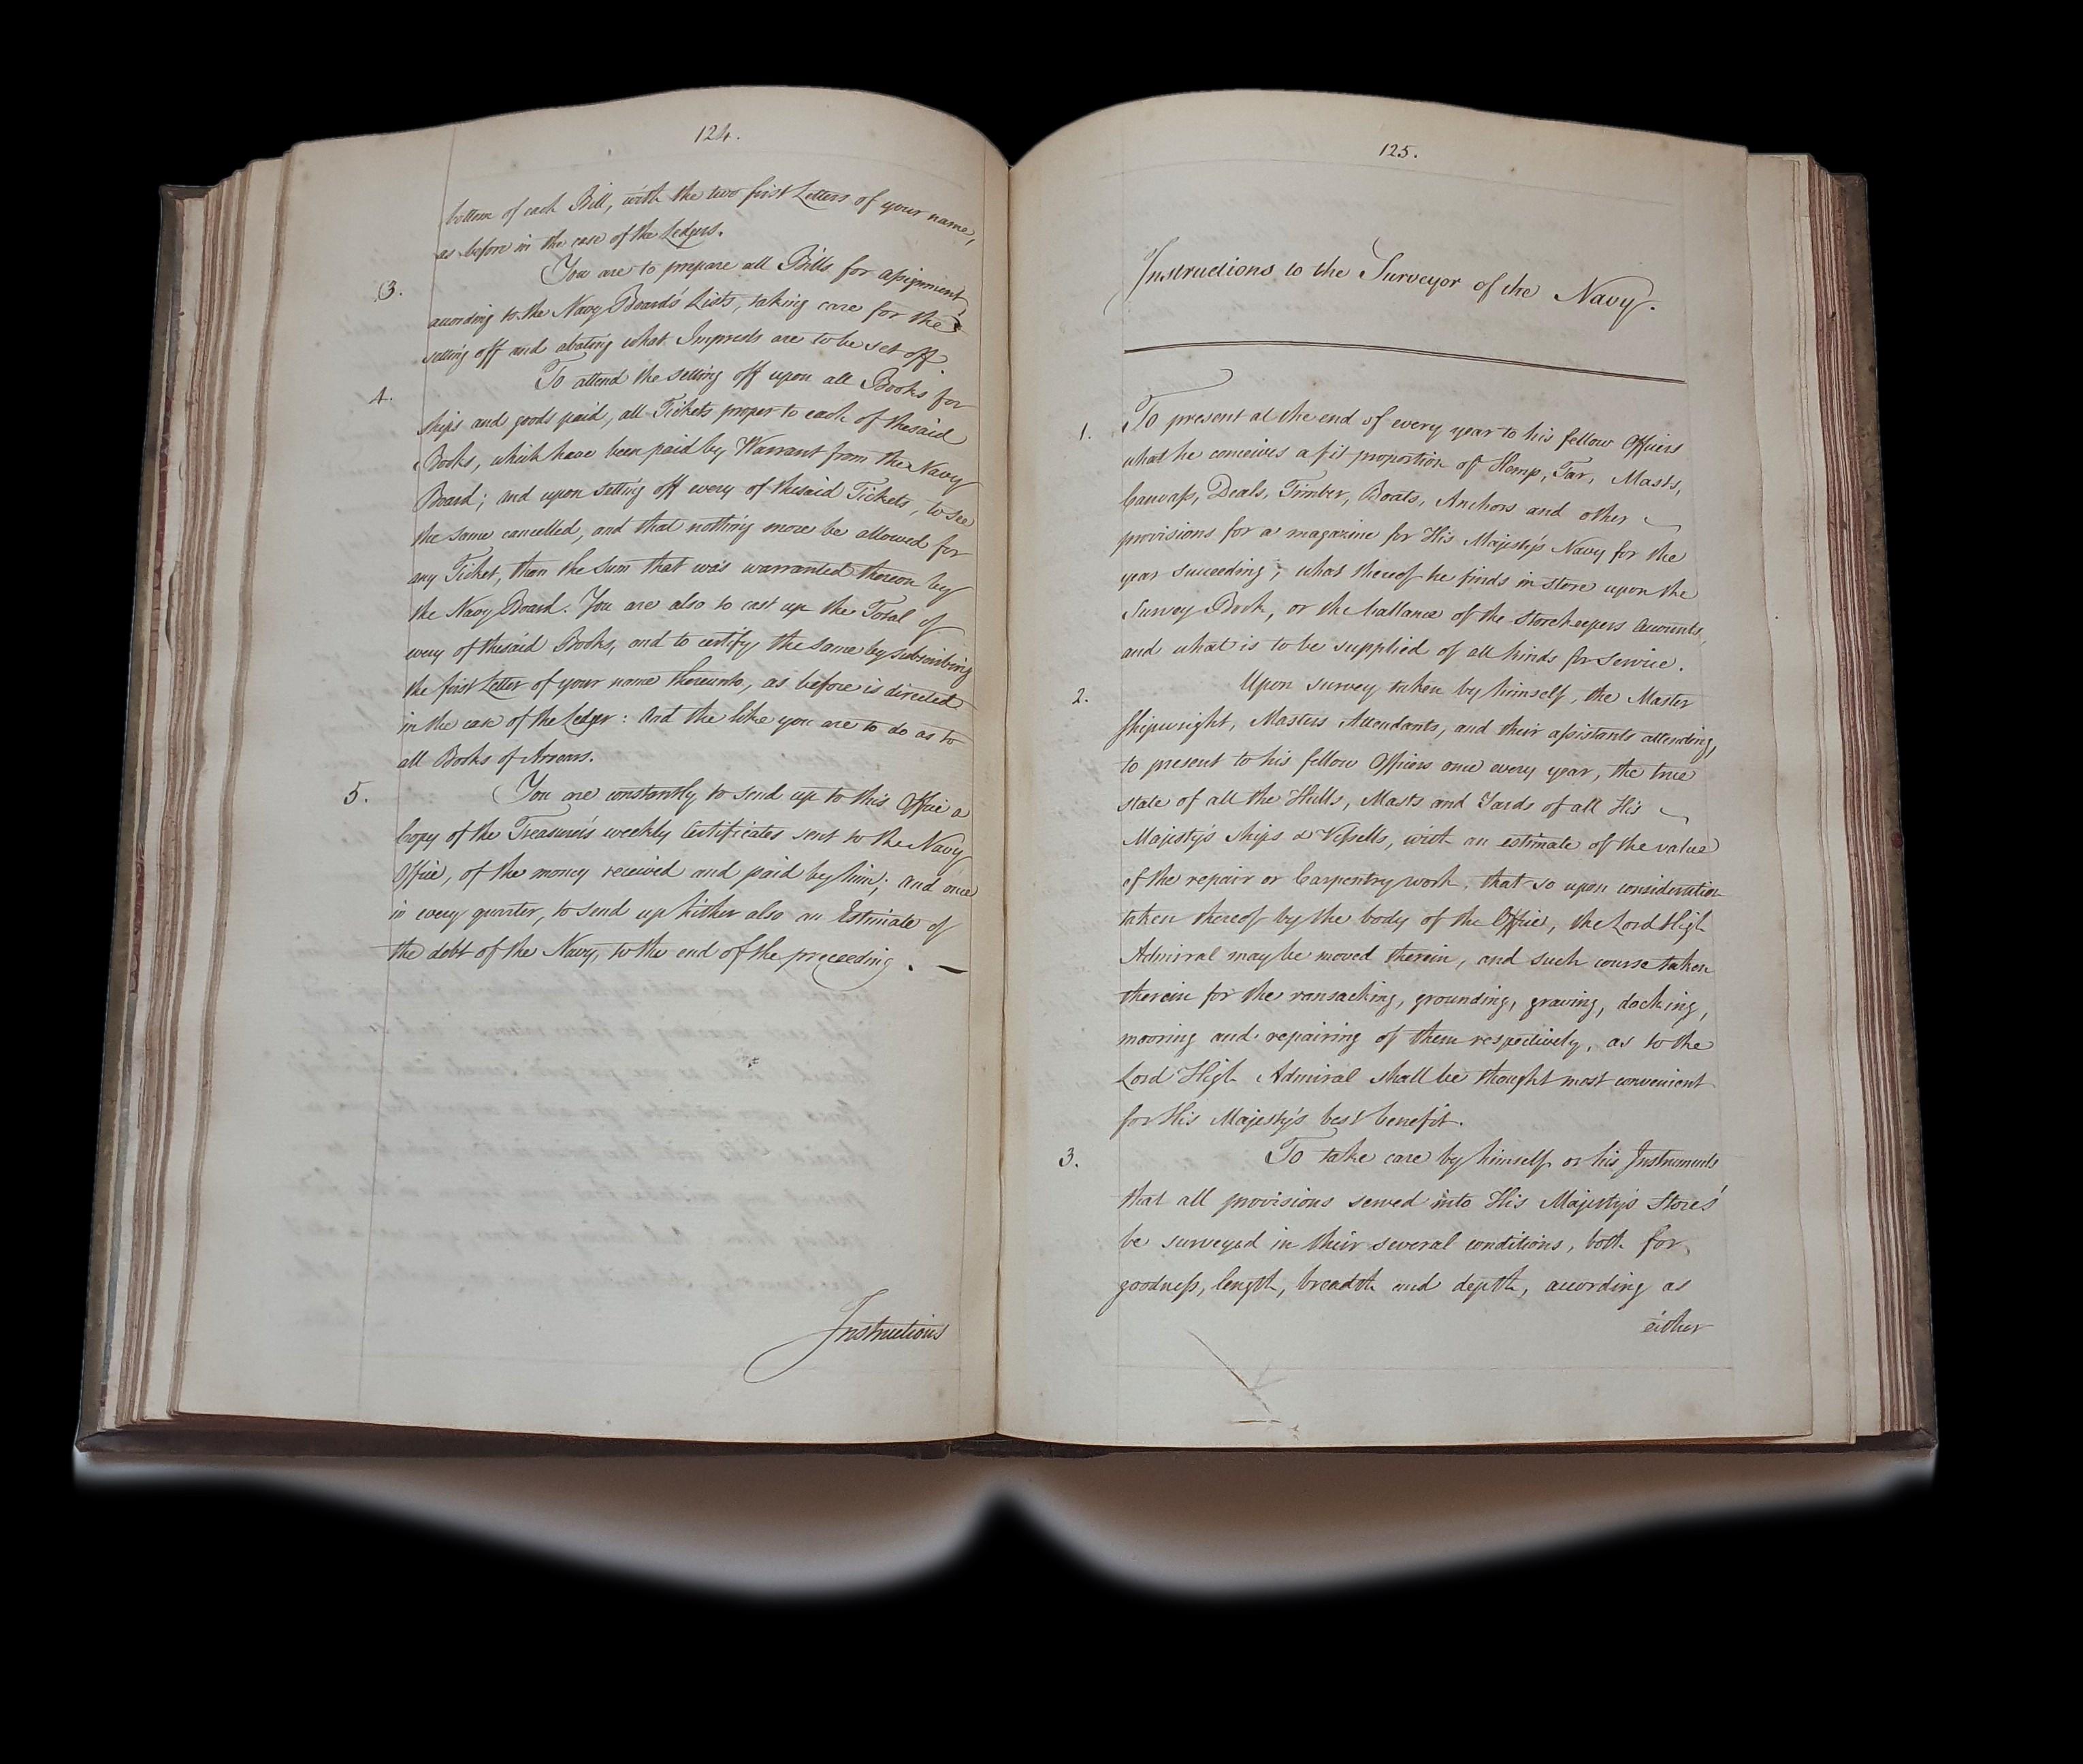 124.
bottom of each Bill, with the two first Letters of your name,
as before in the case of the Ledgers.
3. You are to prepare all Bills for assignment,
according to the Navy Boards' Lists, taking care for the
setting off and abating what Imprests are to be set off.
4. To attend the setting off upon all Books for
ships and goods paid, all Tickets proper to each of thesaid
Books, which have been paid by Warrant from the Navy
Board; and upon setting off every of thesaid Tickets, to see
the same cancelled, and that nothing more be allowed for
any Ticket, than the Sum that was warranted thereon by
the Navy Board. You are also to cast up the Total of
every of thesaid Books, and to certify the same by subscribing
the first Letter of your name thereunto, as before is directed
in the case of the Ledger: And the like you are to do as to
all Books of Arrears.
5. You are constantly to send up to this Office a
Copy of the Treasurer's weekly Certificates sent to the Navy
Office, of the money received and paid by him; and once
in every quarter, to send up hither also an Estimate of
the debt of the Navy, to the end of the preceeding. —
Instructions
125.
Instructions to the Surveyor of the Navy.
1. To present at the end of every year to his fellow Officers
what he conceives a fit proportion of Hemp, Tar, Masts,
Canvass, Deals, Timber, Boats, Anchors and other
provisions for a magazine for His Majesty's Navy for the
year succeeding; what thereof he finds in store upon the
Survey Book, or the ballance of the Storekeepers Accounts,
and what is to be supplied of all kinds for Service.
2. Upon survey taken by himself, the Master
Shipwright, Masters Attendants, and their assistants attending,
to present to his fellow Officers once every year, the true
state of all the Hulls, Masts and Yards of all His
Majesty's Ships & Vessells, with an estimate of the value
of the repair or Carpentry work, that so upon consideration
taken thereof by the body of the Office, the Lord High
Admiral may be moved therein, and such course taken
therein for the ransacking, grounding, graving, docking,
mooring and repairing of them respectively, as to the
Lord High Admiral shall be thought most convenient
for His Majesty's best benefit.
3. To take care by himself or his Instruments
that all provisions served into His Majesty's Stores
be surveyed in their several conditions, both for
goodness, length, breadth and depth, according as
either